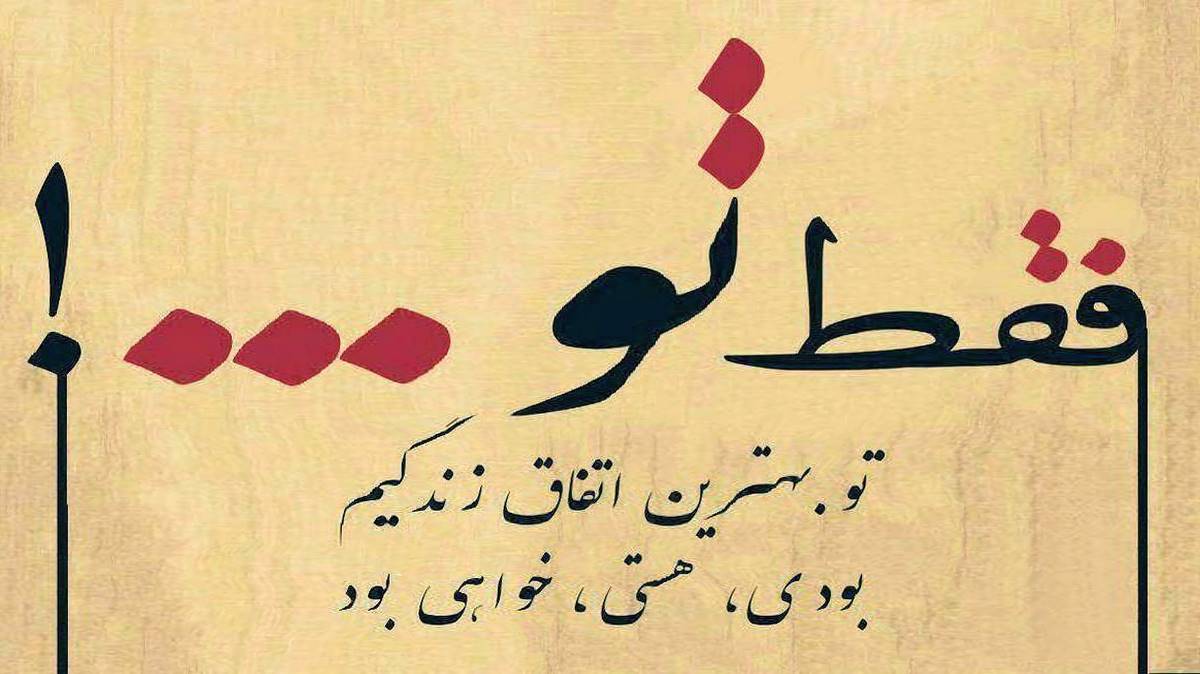 فقط تو ...!
تو بهترین اتفاق زندگیم
بودی، هستی، خواهی بود